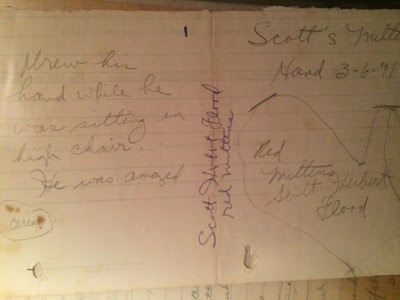 Drew his
hand while he
was sitting in
high chair.
He was amazed
cereal
Scott Flood
red mittens
Scott's Mitten
Hand 3-6-71
Red
Mittens
Scott Hubert
Flood